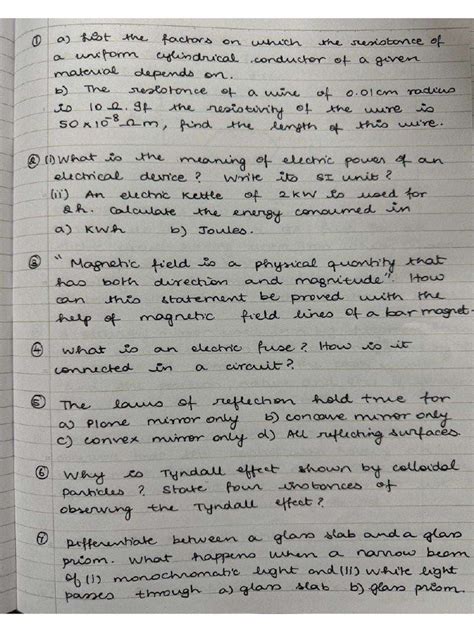 ① a) List the factors on which the resistance of
a uniform cylindrical conductor of a given
material depends on.
b) The resistance of a wire of 0.01cm radius
is 10 Ω. If the resistivity of the wire is
50 x 10⁻⁸ Ωm, find the length of this wire.
② (i) What is the meaning of electric power of an
electrical device? Write its SI unit?
(ii) An electric kettle of 2 kW is used for
2h. Calculate the energy consumed in
a) KWh b) Joules.
③ "Magnetic field is a physical quantity that
has both direction and magnitude". How
can this statement be proved with the
help of magnetic field lines of a bar magnet.
④ What is an electric fuse? How is it
connected in a circuit?
⑤ The laws of reflection hold true for
a) Plane mirror only b) concave mirror only
c) convex mirror only d) All reflecting surfaces.
⑥ Why is Tyndall effect shown by colloidal
particles? State four instances of
observing the Tyndall effect?
⑦ Differentiate between a glass slab and a glass
prism. What happens when a narrow beam
of (i) monochromatic light and (ii) white light
passes through a) glass slab b) glass prism.